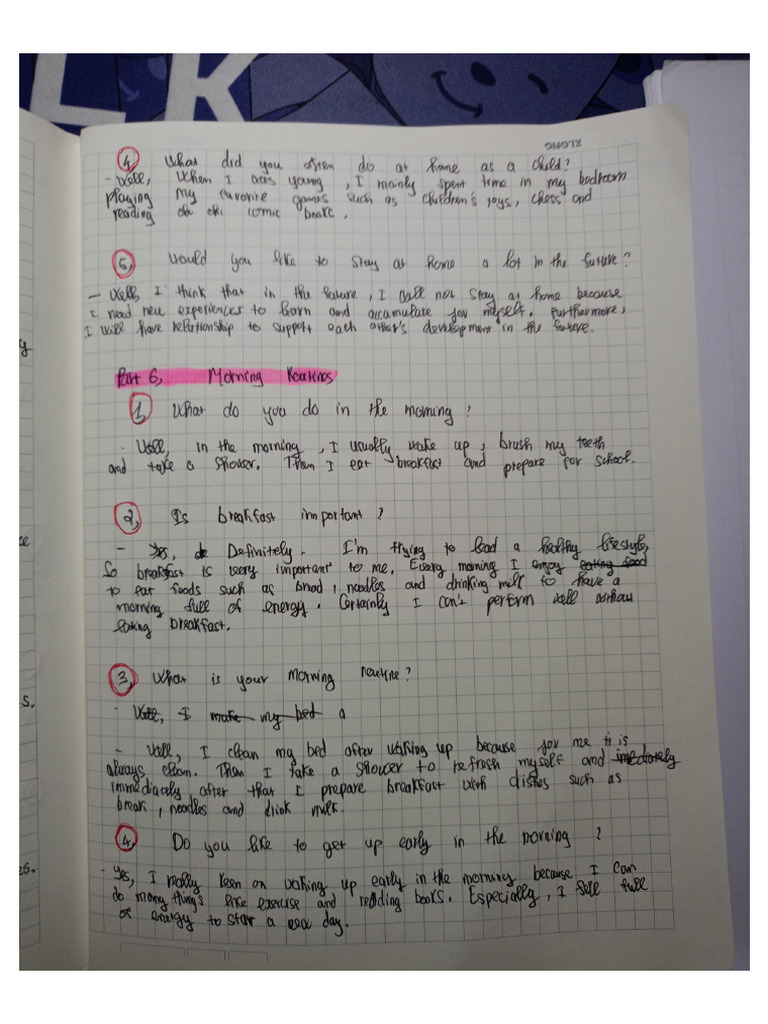 LK
KLONG
4, What did you often do at home as a child?
- Well, When I was young, I mainly spent time in my bedroom
playing my favorite games such as children's toys, chess and
reading comic books.
5, Would you like to stay at home a lot in the future?
- Well, I think that in the future, I will not stay at home because
I need new experiences to learn and accumulate for myself. Furthermore,
I will have relationship to support each other's development in the future.
Part 6, Morning Routines
1, What do you do in the morning?
- Well, in the morning, I usually wake up, brush my teeth
and take a shower. Then I eat breakfast and prepare for school.
2, Is breakfast important?
- Yes, Definitely. I'm trying to lead a healthy lifestyle,
So breakfast is very important to me. Every morning I enjoy eating food
to eat foods such as bread, noodles and drinking milk to have a
morning full of energy. Certainly I can't perform well without
eating breakfast.
3, What is your morning routine?
- Well, I make my bed a
- Well, I clean my bed after waking up because for me it is
always clean. Then I take a shower to refresh myself and imediately
immediately after that I prepare breakfast with dishes such as
break, noodles and drink milk.
4, Do you like to get up early in the morning?
- Yes, I really keen on waking up early in the morning because I can
do many things like exercise and reading books. Especially, I fell full
of energy to start a new day.
y
ce
s.
es.